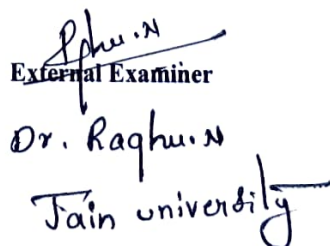 Raghu.N
External Examiner
Dr. Raghu.N
Jain university